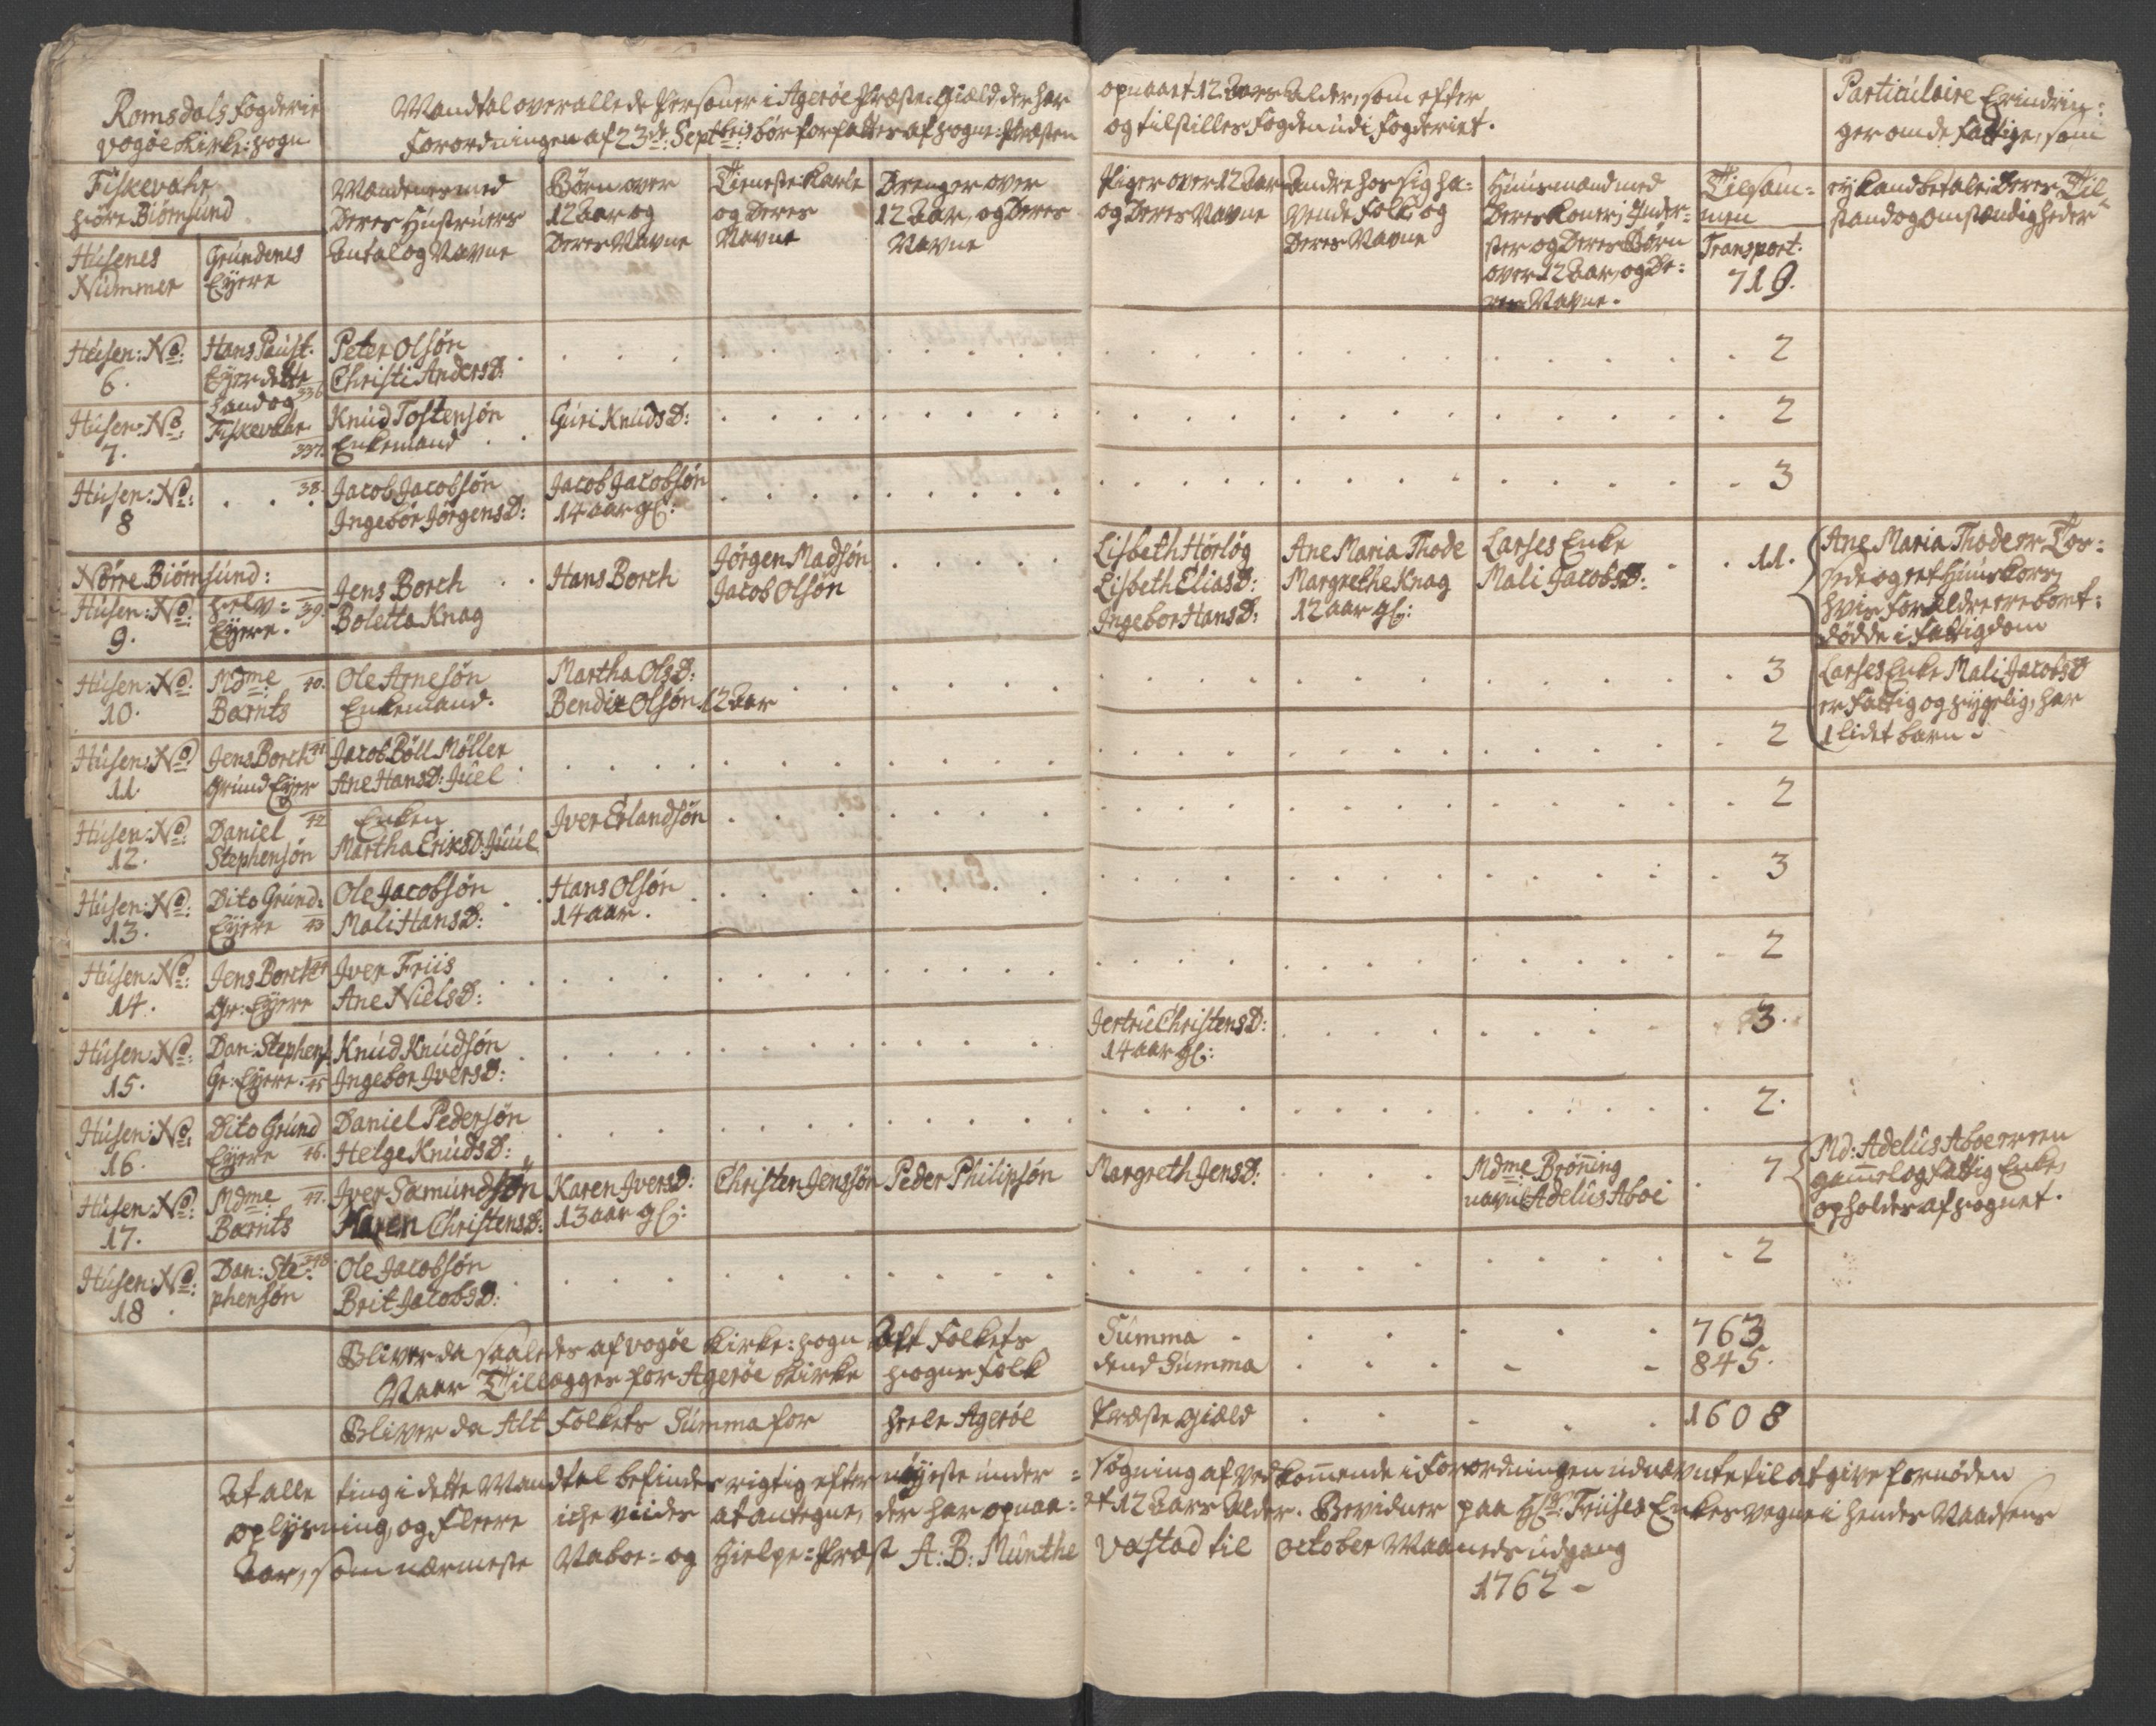 Romsdals Fogderie
Vogöe Kirke-Sogn
Mandtal over alle de Personer i Ageröe Præste-Giæld der har
Forordningen af 23de Septbris bör forfattes af Sogne-Præsten
opnaaet 12 Aars Alder, som efter
og tilstilles Fogden udi Fogderiet.
Particulaire Erindrin:
ger om de Fattige, som
ey kand betale; Deres Til-
stand og omstændigheder
Fiskevahr
Söre Biörnsund
Husenes
Nummer
Grundenes
Eyere
Mandenes med
Deres Hustruers
Antal og Navne
Börn over
12 Aar og
Deres Navne
Tieneste Karle
og Deres
Navne
Drenger over
12 Aar, og Deres
Navne
Piger over 12 Aar
og Deres Navne
Andre hos sig ha:
vende Folk og
Deres Navne
Huusmænd med
Deres Koner; Inder:
ster og Deres Börn
over 12 Aar, og De:
res Navne.
Tilsam:
men
Transport:
719.
Husen: No: 6.
Hans Paust.
Eyer dette
Land og
Fiskevahr
336
Peter Olsön
Christi AndersD:
2
Husen: No: 7.
337.
Knud Tostensön
Enkemand
Guri KnudsD:
2
Husen: No: 8
38.
Jacob Jacobsön
Ingebor JörgensD:
Jacob Jacobsön
14 aar gl:
3
Nörre Biörnsund:
Husen: No: 9.
Selv:
Eyere.
39.
Jens Borch
Boletta Knag
Hans Borch
Jörgen Madsön
Jacob Olsön
Lisbeth Hörlög
Lisbeth EliasD:
Ingebor HansD:
Ane Maria Thode
Margrethe Knag
12 aar gl:
Larses Enke
Mali JacobsD:
11.
Ane Maria Thode er
hvis Forældre ere bort:
dödde i Fattigdom
Husen: No: 10.
Mdme
Barnts
40.
Ole Arnesön
Enkemand.
Martha OlsD:
Bendix Olsön 12 Aar
3
Larses Enke Mali JacobsD
er fattig og sygelig, har
1 lidet barn
Husen: No 11
Jens Borch
Grund Eyer
41
Jacob Böll Möller
Ane HansD: Juel
2
Husen: No: 12.
Daniel
Stephensön
42
Enken
Martha EriksD: Juul
Iver Erlandsön
2
Husen: No: 13.
Dito Grund:
Eyere
43
Ole Jacobsön
Mali HansD:
Hans Olsön
14 aar.
3
Husen: No: 14.
Jens Borch
Gr: Eyere
44
Iver Friis
Ane NielsD:
2
Husen: No: 15.
Dan: Stephens.
Gr: Eyere.
45
Knud Knudsön
Ingebor IversD:
Jertru ChristensD:
14 aar gl:
3.
Husen: No: 16.
Dito Grund
Eyere
46.
Daniel Pedersön
Helge KnudsD:
2.
Husen: No: 17.
Mdme
Barnts
47.
Iver Samundsön
Maren ChristensD:
Karen IversD:
13 aar gl:
Christen Jenssön
Peder Philipsön
Margreth JensD:
Mdme Bröning
navn Adelus Aboe
7
Md: Adelus Aboe er en
gammel og fattig Enke,
opholdes af Sognet.
Husen: No: 18
Dan: Ste:
phensön
348
Ole Jacobsön
Brit JacobsD:
2
Bliver da saaledes af Vogöe Kirke: Sogn Alt Folkets Summa 763
Naar Tillægges for Ageröe Kirke Sogns Folk dend Summa 845.
Bliver da Alt Folkets Summa for Heele Ageröe Præste Giæld 1608
At alle ting i dette Mandtal befindes rigtig efter nöyeste under = sögning af Vedkommende i Forordningen udnævnte til at give fornöden
oplysning, og Fleere iche viides at antegne, der har opnaa: et 12 Aars Alder. Bevidner paa Hr: Friises Enkes vegne i hendes Naadsens
Aar, som nærmeste Naboe- og Hielpe-Præst A: B: Munthe Vastad til October Maaneds udgang
1762